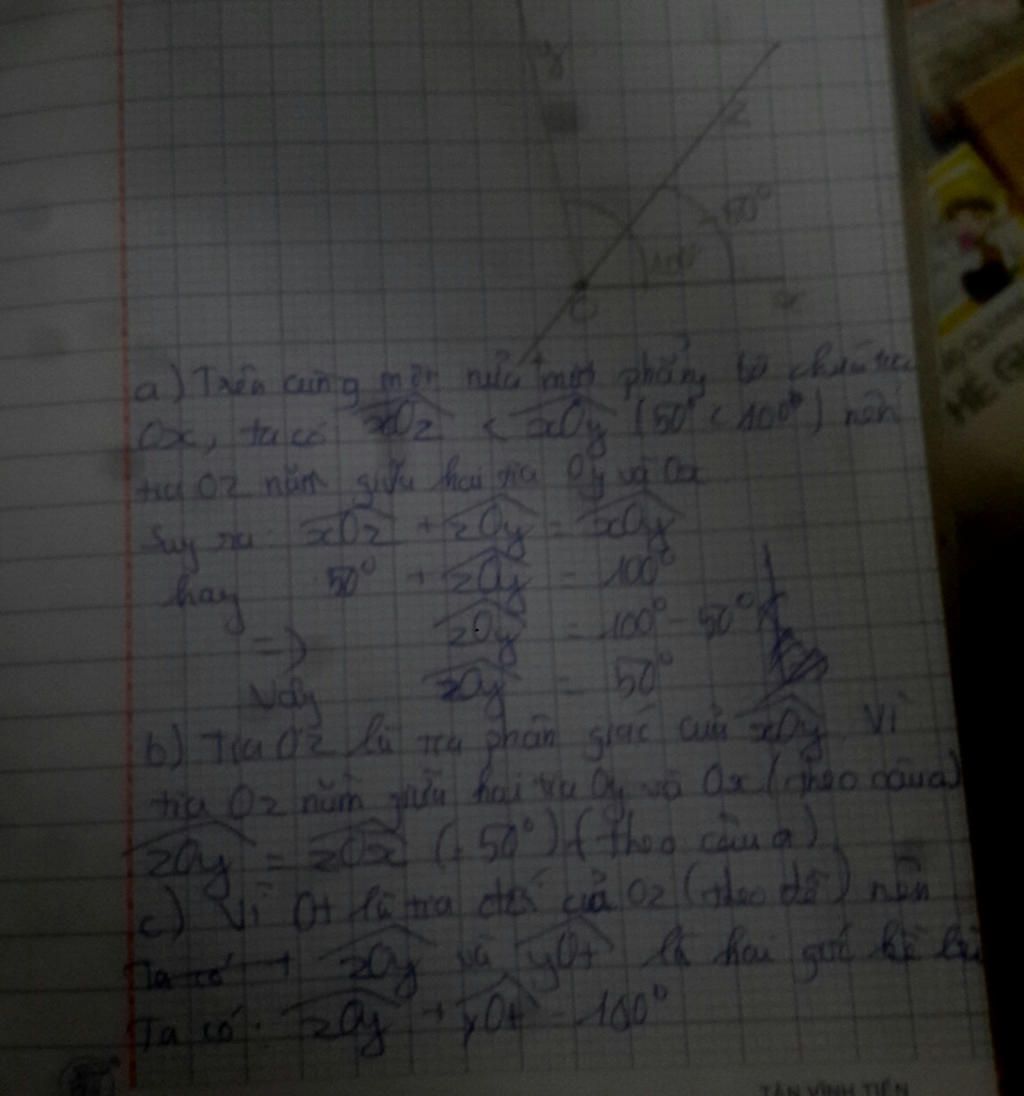 y
z
50°
100°
O
x
a) Trên cùng một nửa mặt phẳng bờ chứa tia
Ox, ta có xOz < xOy (50° < 100°) nên
tia Oz nằm giữa hai tia Oy và Ox
Suy ra xOz + zOy = xOy
hay 50° + zOy = 100°
=> zOy = 100° - 50°
Vậy zOy = 50°
b) Tia Oz là tia phân giác của xOy Vì
tia Oz nằm giữa hai tia Oy và Ox (theo câu a)
zOy = zOx (= 50°) (theo câu a)
c) Vì Ot là tia đối của Oz (theo đề) nên
Ta có zOy và yOt là hai góc kề bù
Ta có: zOy + yOt = 180°
TÂN VĨNH TIẾN